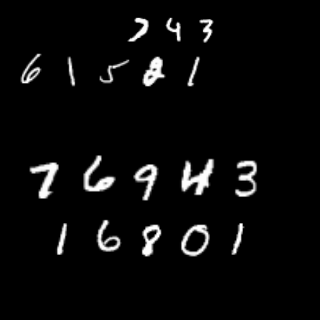 7 4 3
6 1 5 8 1
7 6 9 4 3
1 6 8 0 1